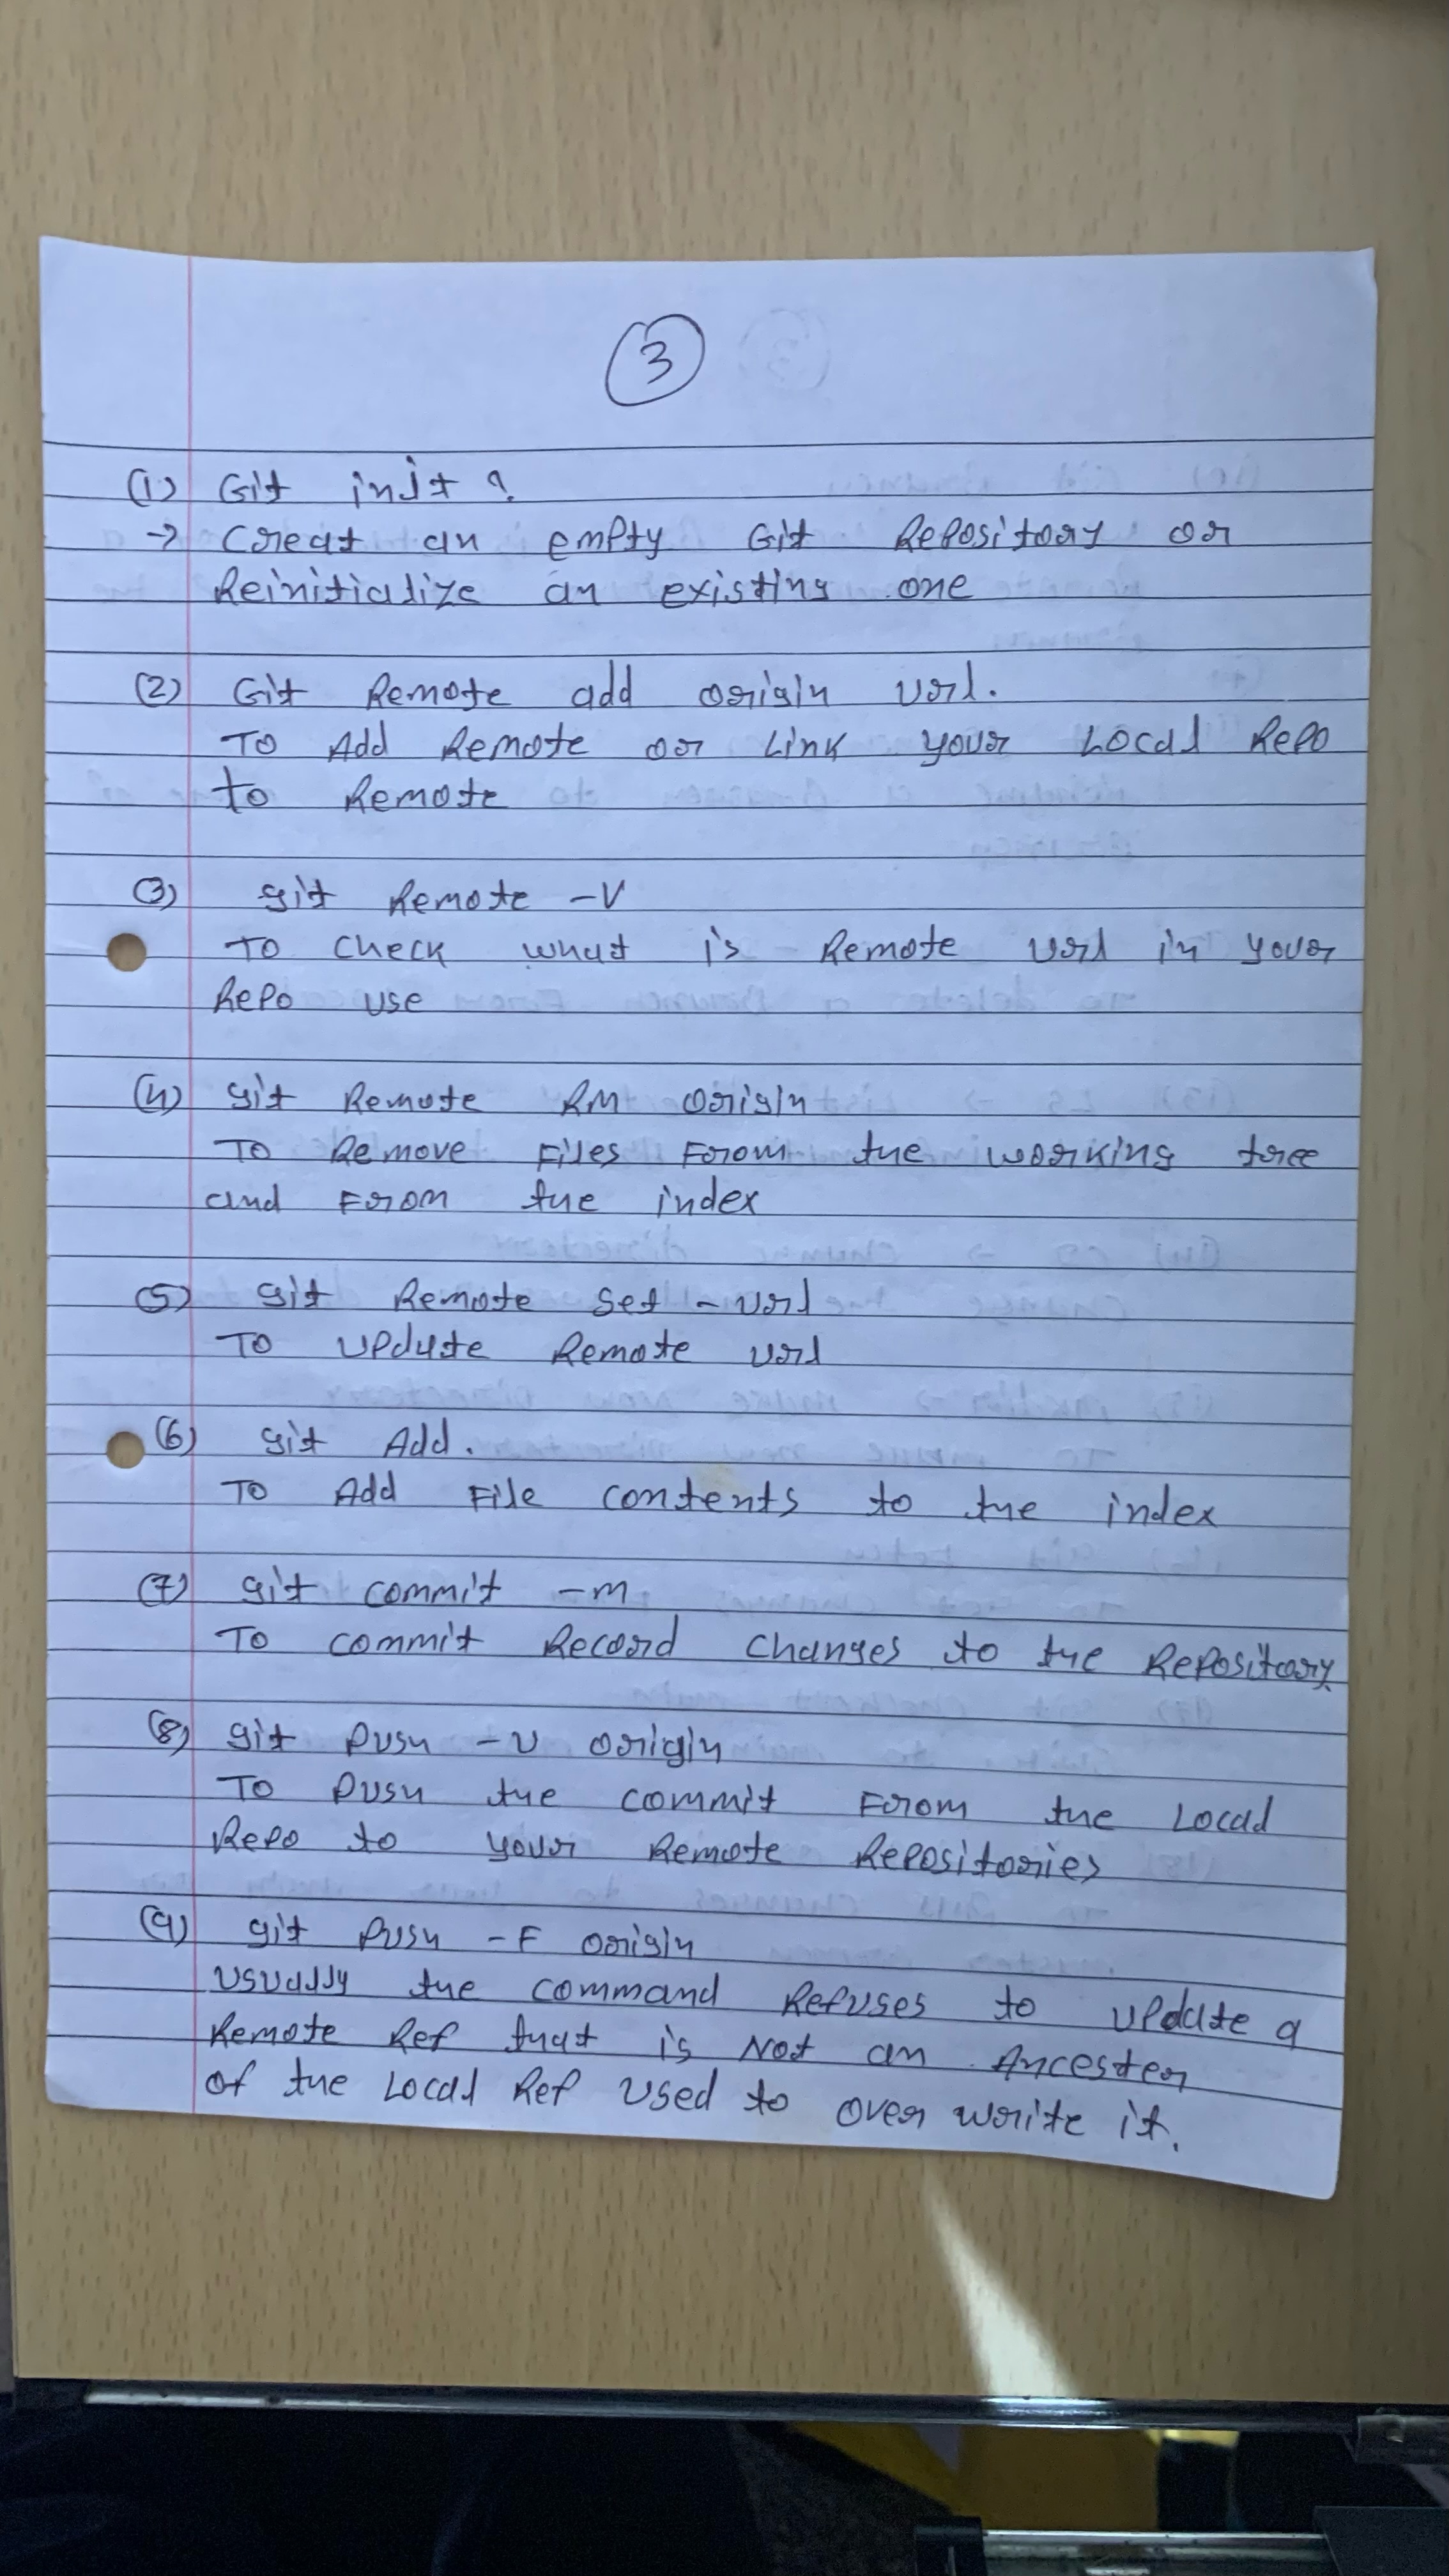 3
(1) Git init ?
→ Creat an empty Git Repository or
Reinitialize an existing one
(2) Git Remote add origin url.
To Add Remote or Link your Local Repo
to Remote
(3) git Remote -V
To check what is Remote url in your
Repo use
(4) git Remote RM origin
To Remove Files From the working tree
and From the index
(5) git Remote set-url
To update Remote url
(6) git Add.
To Add File contents to the index
(7) git commit -m
To commit Record changes to the Repository
(8) git Push -u origin
To Push the commit From the Local
Repo to your Remote Repositories
(9) git Push -F origin
usually the command Refuses to update a
Remote Ref that is Not an Ancester
of the Local Ref used to over write it.